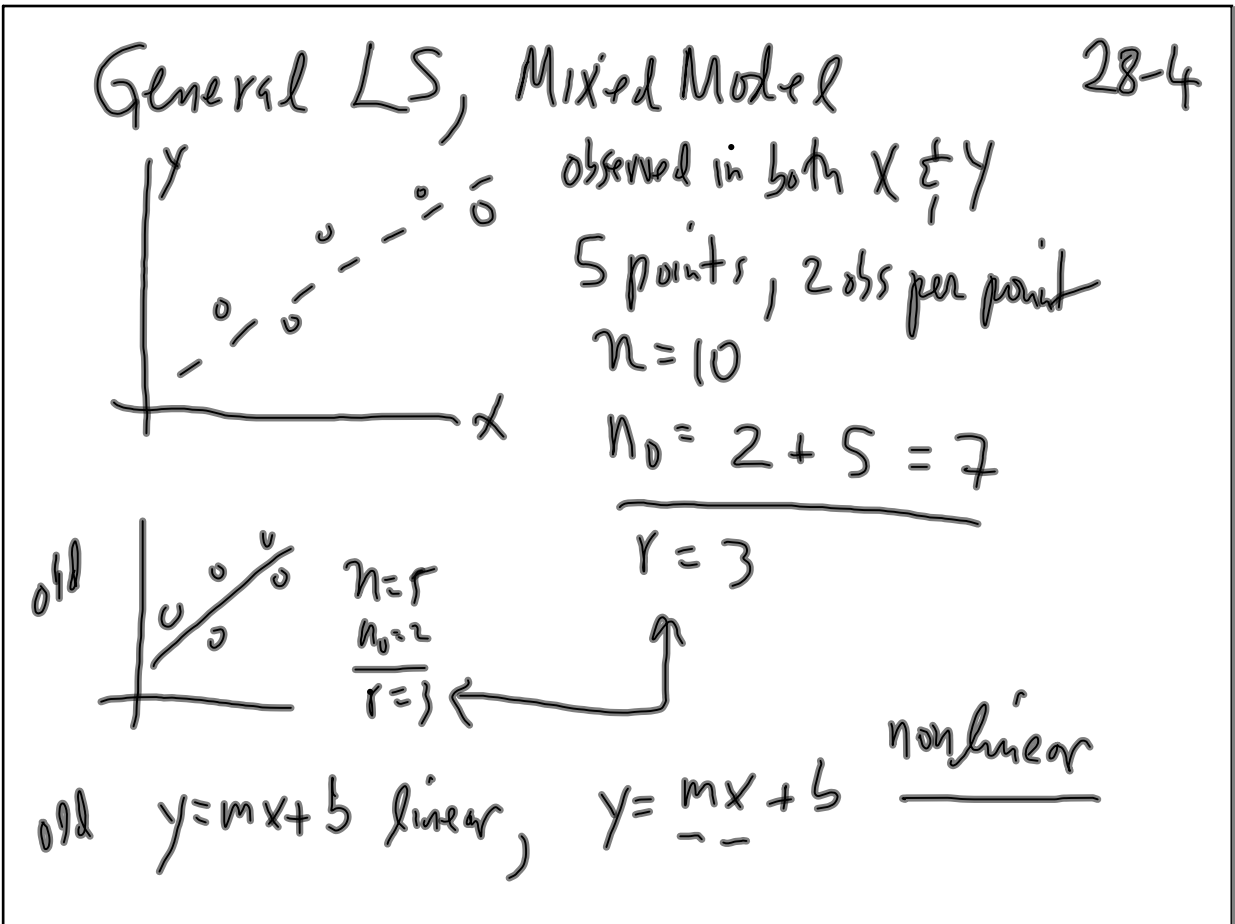 General LS, Mixed Model 28-4
Y
X
observed in both X & Y
5 points, 2 obs per point
n=10
n₀ = 2 + 5 = 7
r = 3
old
n=5
n₀=2
r=3
old y=mx+b linear, y=mx+b nonlinear